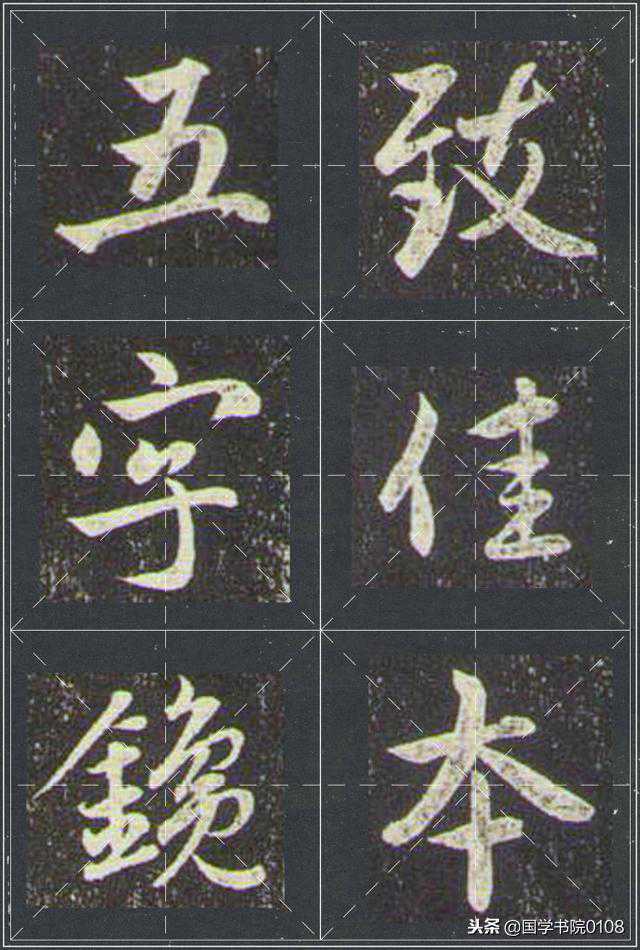 致佳本
五字鑱
头条 @国学书院0108